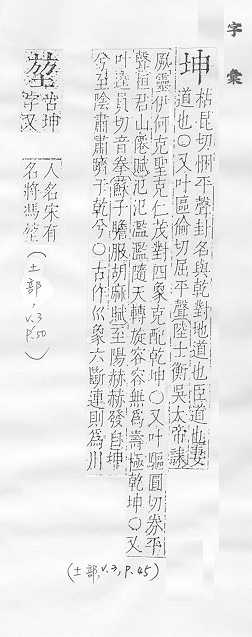 字彙
坤 枯昆切悃平聲卦名與乾對地道也臣道也妻
道也〇又叶區倫切屈平聲陸士衡吳太帝誄
厥靈伊何克聖克仁茂對四象克配乾坤〇又叶驅圓切劵平
聲桓君山僊賦氾氾濫濫隨天轉旋容容無為壽極乾坤〇又
叶逵員切音拳蘇子瞻服胡麻賦至陽赫赫發自坤
兮至陰肅肅躋于乾兮〇古作巛象六斷連則為川
(土部, v.3, p.45)
堃 古坤
字又
人名宋有
名將馮堃
(土部, v.3 p.50)